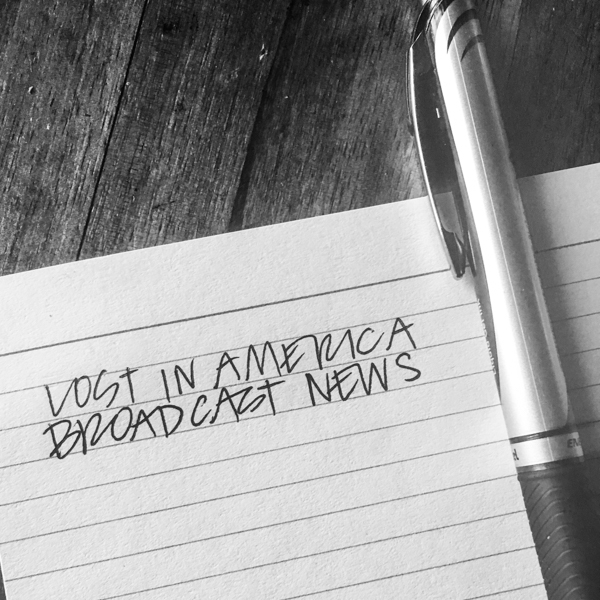 LOST IN AMERICA
BROADCAST NEWS